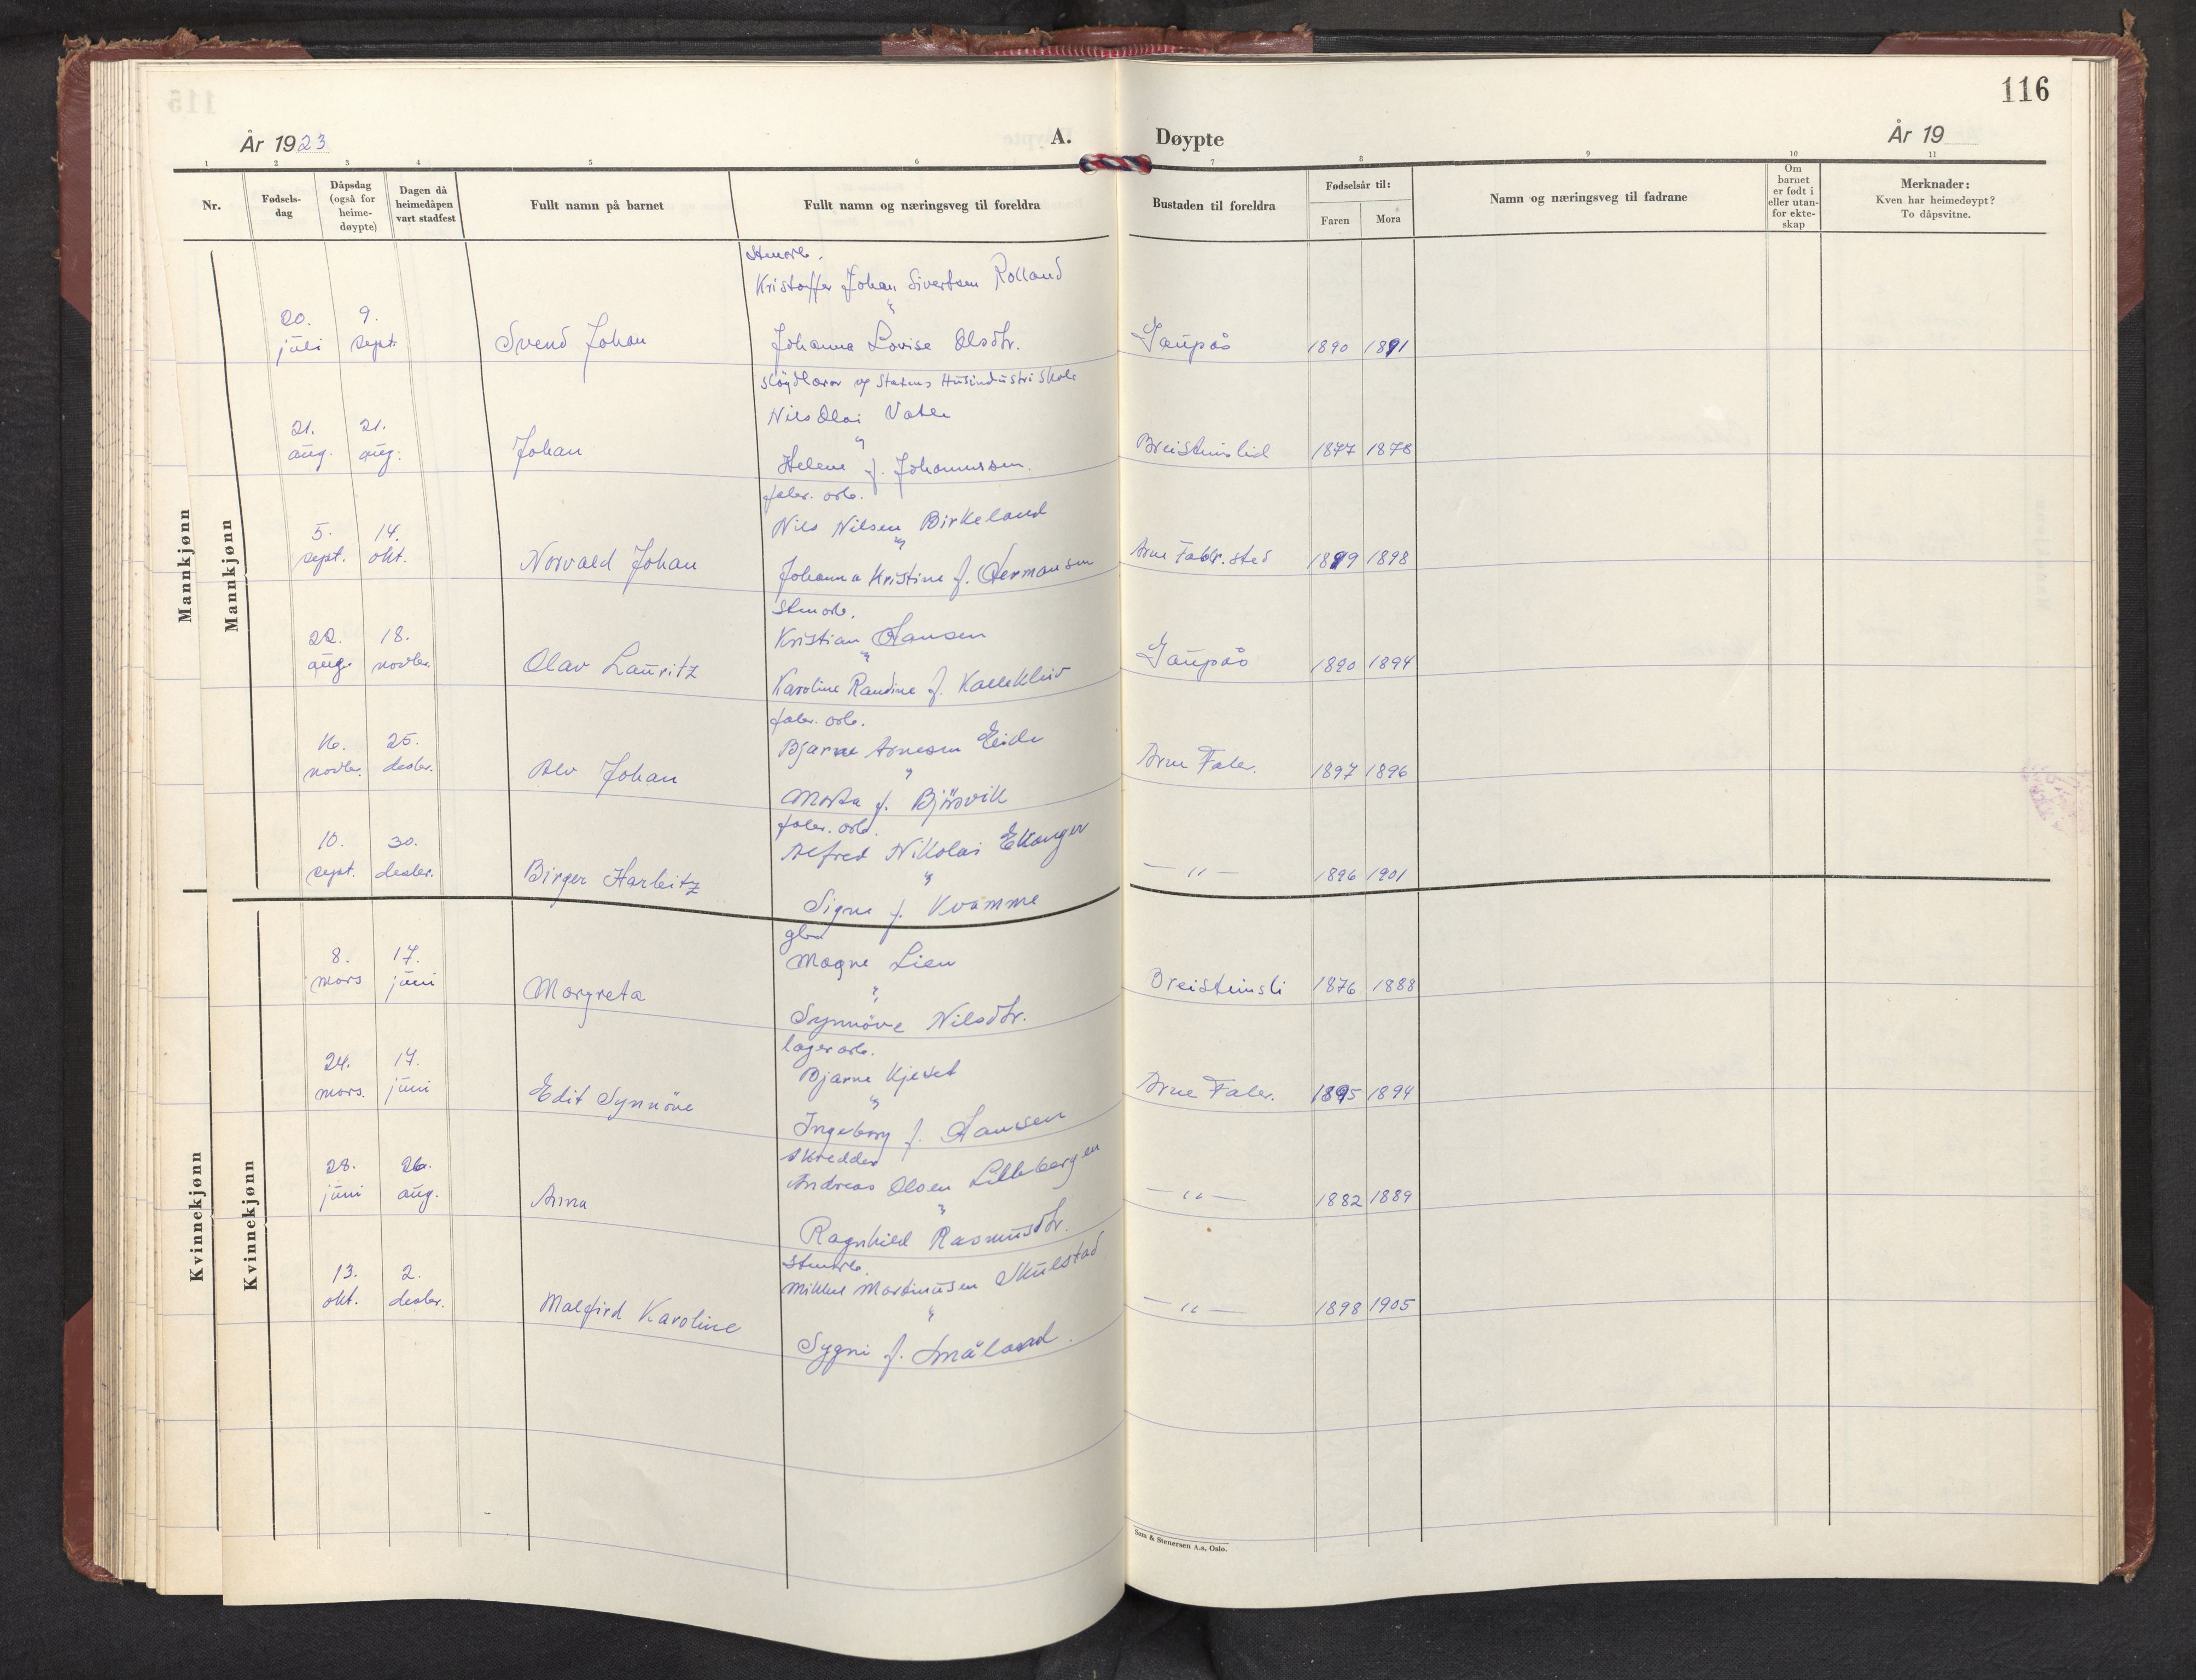 116
År 1923
A.
Døypte
År 19
1 2 3 4 5 6 7 8 9 10 11
Nr.
Fødsels-
dag
Dåpsdag
(også for
heime-
døypte)
Dagen då
heimedåpen
vart stadfest
Fullt namn på barnet
Fullt namn og næringsveg til foreldra
Bustaden til foreldra
Fødselsår til:
Faren Mora
Namn og næringsveg til fadrane
Om
barnet
er født i
eller utan-
for ekte-
skap
Merknader:
Kven har heimedøypt?
To dåpsvitne.
Mannkjønn
Mannkjønn
Stmarb.
Kristoffer Johan Sivertsen Rolland
20. 9.
juli sept. Svend Johan Johanna Lovise Olsdtr. Gaupås 1890 1891
sløydlærer og Statens Husindustriskole
Nils Olai Vatle
21. 21.
aug. aug. Johan Helene f. Johannessen. Breisteinslid 1877 1878
fabr. arb.
Nils Nilsen Birkeland
5. 14.
sept. okt. Norvald Johan Johanna Kristine f. Hermansen Arne Fabr. sted 1899 1898
stmarb.
Kristian Hansen
22. 18.
aug. novbr. Olav Lauritz Karoline Randine f. Kallekleiv Gaupås 1890 1894
fabr. arb.
Bjarne Arnesen Eide
16. 25.
novbr. desbr. Alv Johan Marta f. Bjørsvik Arne Fabr. 1897 1896
fabr. arb.
Alfred Nikolai Ekanger
10. 30.
sept. desbr. Birger Harbitz Signe f. Kvamme — " — 1896 1901
Kvinnekjønn
Kvinnekjønn
gbr.
Magne Lien
8. 17.
mars juni Margreta Synnöve Nilsdtr. Breisteinsli 1876 1888
lagerarb.
Bjarne Kjeset
24. 17.
mars. juni Edit Synnöve Ingeborg f. Hansen Arne Fabr. 1895 1894
skredder
Andreas Olsen Lillebergen
28. 26.
juni aug. Anna Ragnhild Rasmusdtr. — " — 1882 1889
stmarb.
Mikkel Mardinusen Skulstad
13. 2.
okt. desbr. Malfird Karoline Sygni f. Småland. — " — 1898 1905
Sem & Stenersen A.s, Oslo.